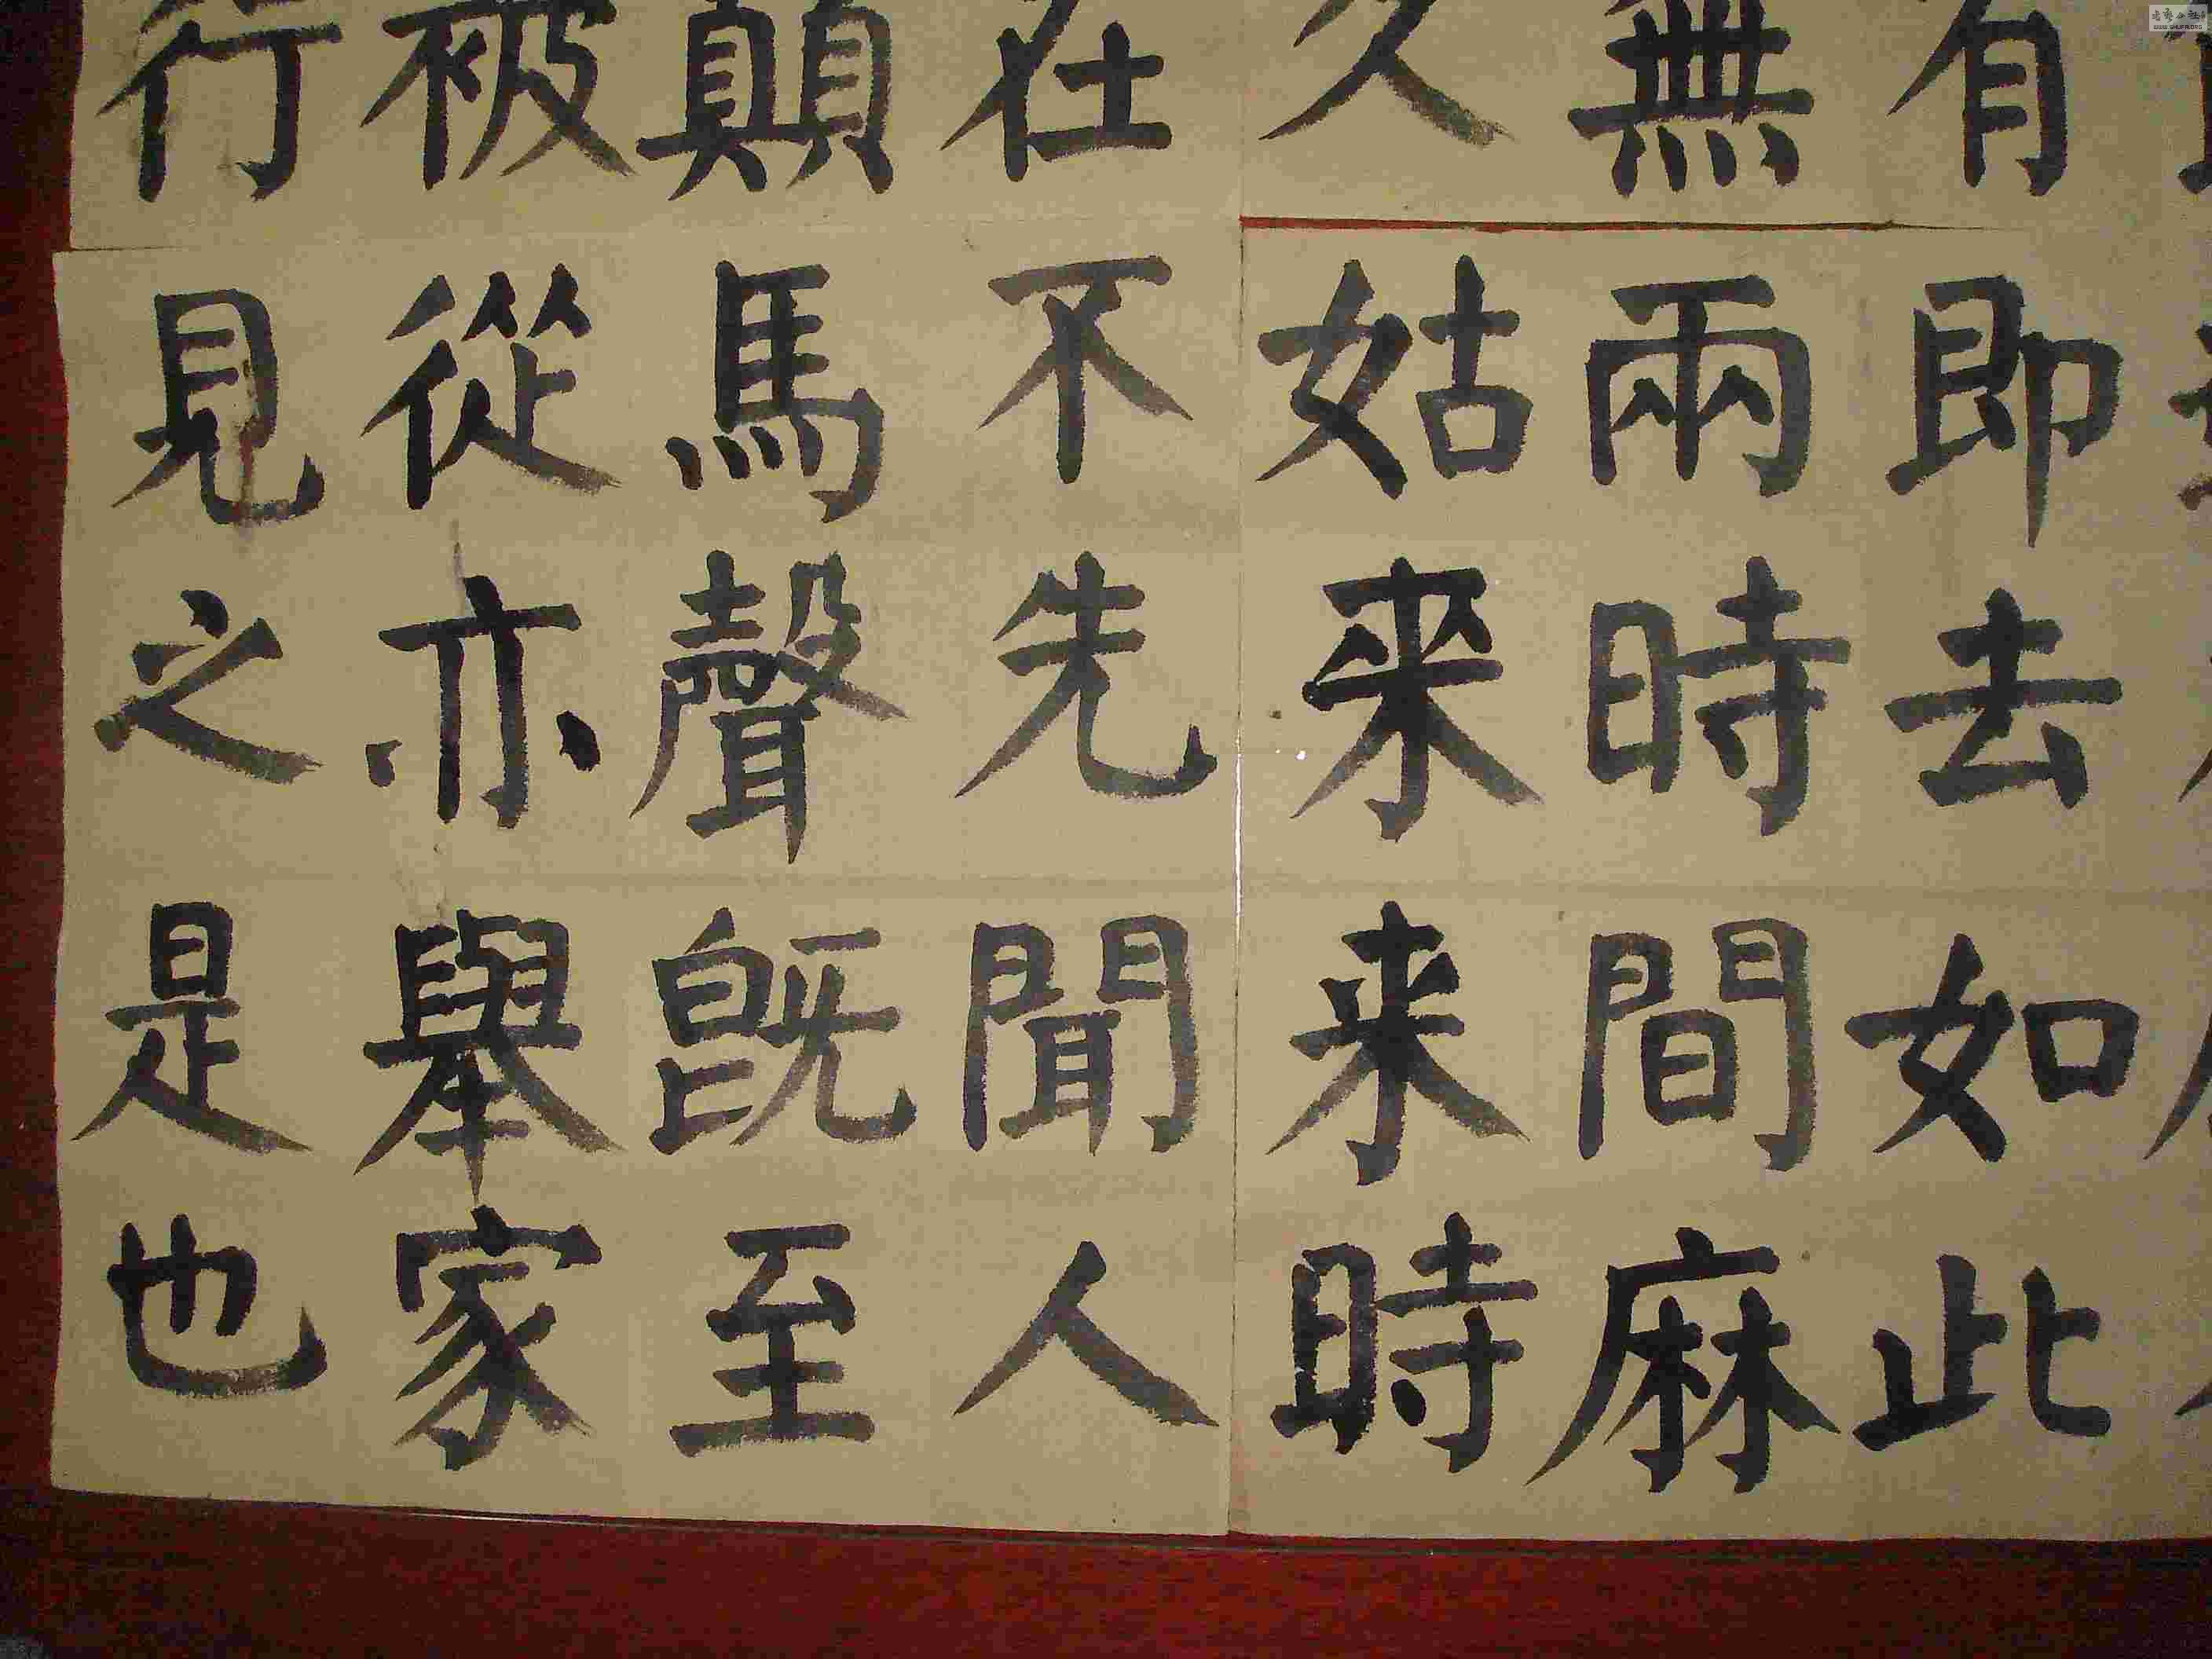 有即去如此
無兩時間麻
久姑来来時
在不先聞人
顛馬聲既至
被從亦舉家
行見之是也